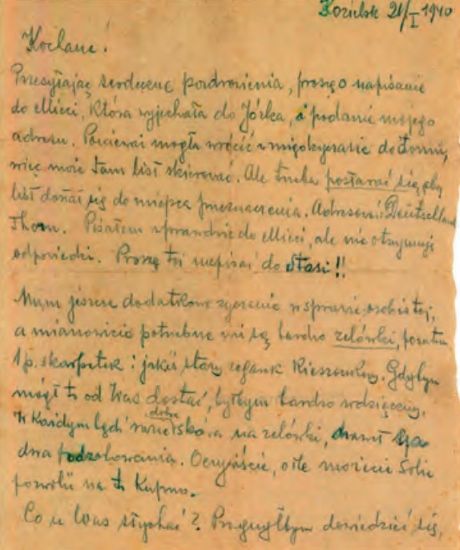 Kozielsk 21/I 1940
Kochane!
Przesyłając serdeczne pozdrowienia, proszę o napisanie
do Mieci, która wyjechała do Józka, a podanie mojego
adresu. Ponieważ mogła wrócić w międzyczasie do domu,
więc może tam list skierować. Ale trzeba postarać się, aby
list dostał się do miejsca przeznaczenia. Adresem: Deutschland
Thorn. Pisałem wprawdzie do Mieci, ale nie otrzymuję
odpowiedzi. Proszę też napisać do Stasi!!
Mam jeszcze dodatkowe życzenie w sprawie osobistej,
a mianowicie potrzebne mi są bardzo zelówki, poza tem
1 p. skarpetek i jakiś stary zegarek kieszonkowy. Gdybym
mógł to od Was dostać, byłbym bardzo wdzięczny.
W każdym bądź razie skóra na zelówki, dobre
dwa podzelowania. Oczywiście, o ile możecie sobie
pozwolić na to kupno.
Co u Was słychać? Pragnąłbym dowiedzieć się,